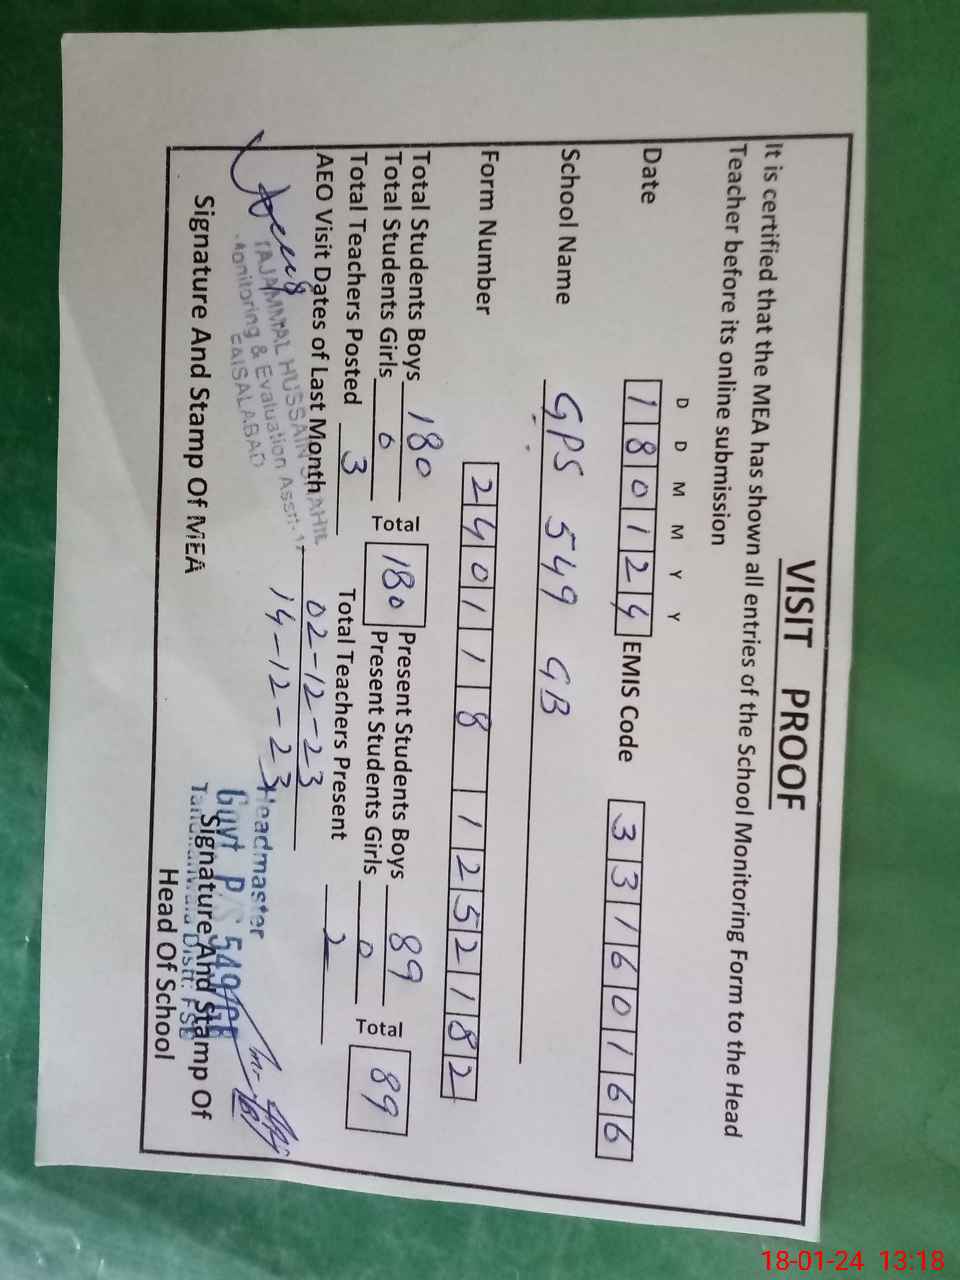 VISIT PROOF
It is certified that the MEA has shown all entries of the School Monitoring Form to the Head
Teacher before its online submission
D D M M Y Y
Date 1 8 0 1 2 4 EMIS Code 3 3 1 6 0 1 6 6
School Name GPS 549 GB
Form Number 2 4 0 1 1 8 1 2 5 2 1 8 2
Total Students Boys 180 Present Students Boys 89
Total Students Girls 0 Total 180 Present Students Girls 0 Total 89
Total Teachers Posted 3 Total Teachers Present 2
AEO Visit Dates of Last Month 02-12-23
14-12-23
TAJAMMAL HUSSAIN
Monitoring & Evaluation Asstt-
FAISALABAD
Headmaster
Govt P/S 549/GB
Distt. FSD
Signature And Stamp Of MEA
Signature And Stamp Of
Head Of School
18-01-24 13:18